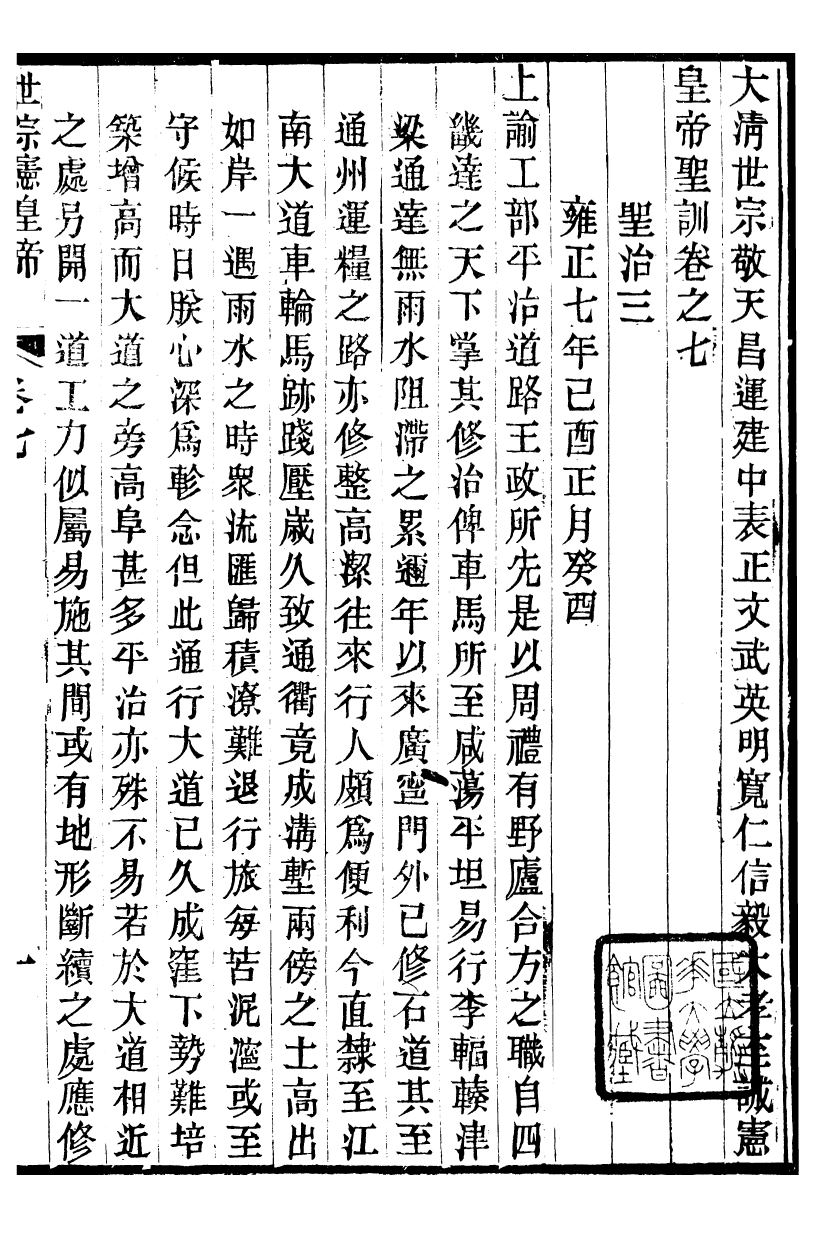 大清世宗敬天昌運建中表正文武英明寬仁信毅大孝至誠憲
皇帝聖訓卷之七
聖治三
雍正七年己酉正月癸酉
上諭工部平治道路王政所先是以周禮有野廬合方之職自四
畿達之天下掌其修治俾車馬所至咸蕩平坦易行李輻輳津
梁通達無雨水阻滯之累邇年以來廣寍門外已修石道其至
通州運糧之路亦修整高潔往來行人頗為便利今直隸至江
南大道車輪馬跡踐壓歲久致通衢竟成溝塹兩傍之土高出
如岸一遇雨水之時衆流匯歸積潦難退行旅每苦泥濘或至
守候時日朕心深爲軫念但此通行大道已久成窪下勢難培
築增高而大道之旁高阜甚多平治亦殊不易若於大道相近
之處另開一道工力似屬易施其間或有地形斷續之處應修
世宗憲皇帝 卷七 一
國立清華大學圖書館藏